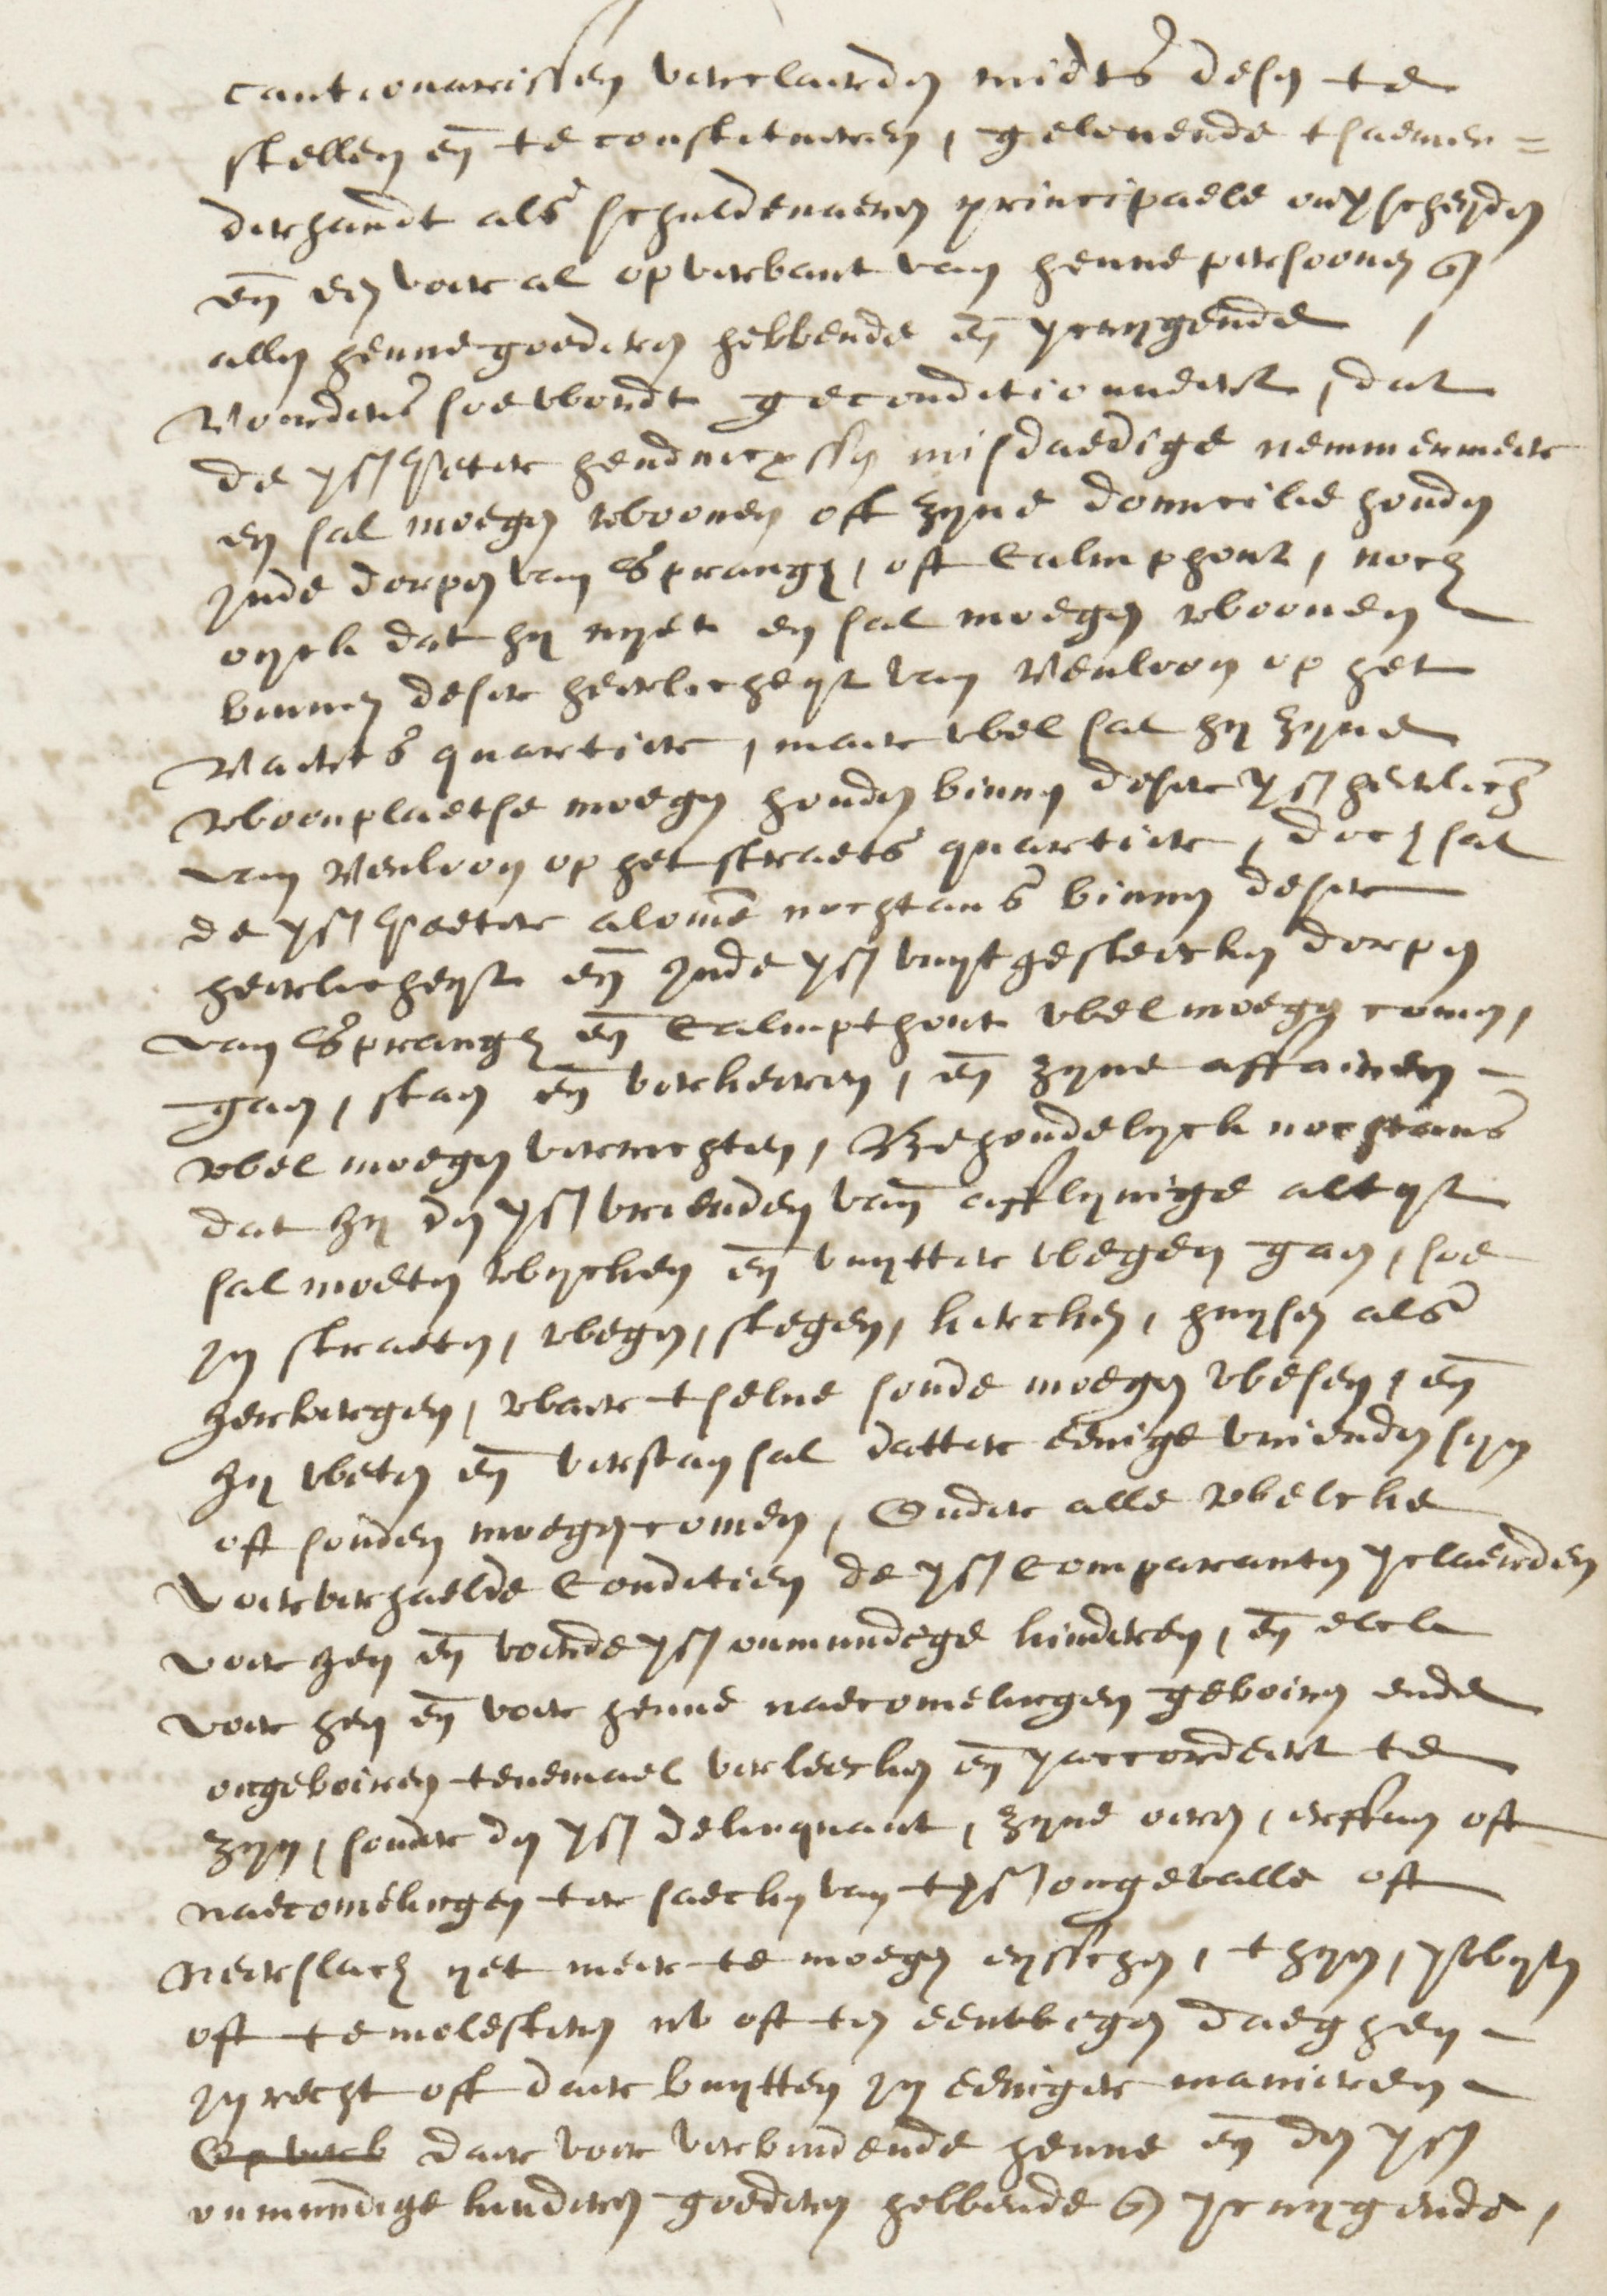 cautionarissen verclairden midts desen te
stellen en̄ te constitueren, gelovende tsaemen=
derhandt als schuldenaeren principaele onverscheyden
en̄ een voer al op verbant van henne persoonen en̄
allen henne goederen hebbende en̄ vercrygende,
Voerders soe wordt geconditionneert, dat
de vs. Peter hendricxssen misdaedige nemmermeer
en sal moegen woonen oft zyne domicilie houden
Inde dorpen van Sprangh, oft Calmphout, noch
oyck dat hy nyet en sal moegen woonen
binnen deser heerlicheyt van Venloon op het
Vaerts quartier, maer wel sal hy zyne
woonplaetse moegen houden binnen deser vs. heerlich.
van Venloon op het straets quartier, doch sal
de vs. Peeter alomē nochtans binnen deser
heerlicheyt en̄ Inde vs. vuytgesteecken dorpen
van Sprangh en̄ Calmpthout wel moegen comen,
gaen, staen en̄ verkeeren, en̄ zyne affairen
wel moegen verrichten, Behoudelyck nochtans
dat hy den vs. vrienden van afflyvige altyt
sal moeten wycken en̄ vuytter wegen gaen, soe
In straeten, wegen, stegen, kercken, huysen als
herbergen, waer tselve soude moegen wesen, en̄
hy weten en̄ verstaen sal datter eenige vrienden syn
oft souden moegen comen, Onder alle welcke
voerverhaelde Conditien de vs. Comparanten verclaerden
voer hen en̄ voer de vs. onmundige kinderen, en̄ elck
voer hen en̄ voer henne naecomelingen geboiren ende
ongeboiren tenemael verleecken en̄ veraccordeert te
zyn, sonder den vs. delinquant, zyne oiren, erffven oft
naecomelingen ter saecken van tvs. ongevalle oft
Neerslach yet meer te moegen eysschen, thyen, verwyten
oft te molesteren nv oft ten eenwegen daeghen
In recht oft daer buytten In eeniger manieren
Op verb daer voer verbindende henne en̄ den vs.
onmundige kinderen goederen hebbende en̄ vercrygende,